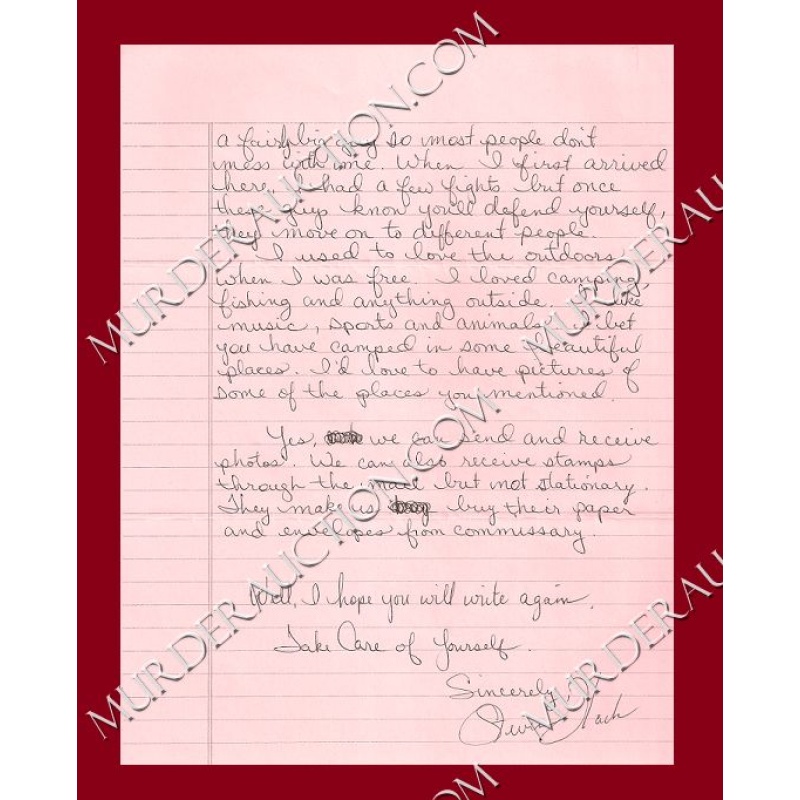 a fairly big guy so most people don't
mess with me. When I first arrived
here, I had a few fights but once
these guys know you'll defend yourself,
they move on to different people.
I used to love the outdoors
when I was free. I loved camping,
fishing and anything outside. I like
music, sports and animals. I bet
you have camped in some beautiful
places. I'd love to have pictures of
some of the places you mentioned.
Yes, we can send and receive
photos. We can also receive stamps
through the mail but not stationary.
They make us buy their paper
and envelopes from commissary.
Well, I hope you will write again.
Take Care of Yourself.
Sincerely,
MURDERAUCTION.COM
MURDERAUCTION.COM
MURDERAU
MURDERAU